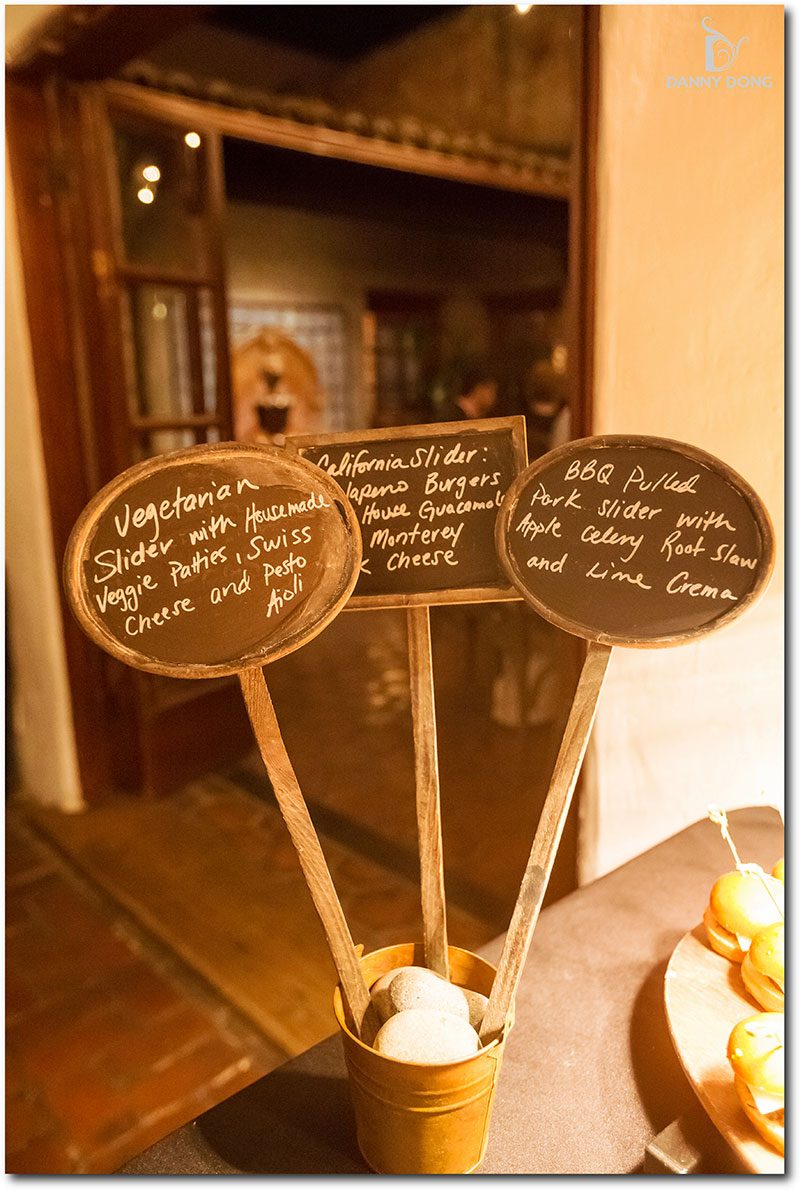 DANNY DONG
Vegetarian
Slider with Housemade
Veggie Patties, Swiss
Cheese and Pesto
Aioli
California Slider:
Burgers
House Guacamole
Monterey
Cheese
BBQ Pulled
Pork slider with
Apple Celery Root Slaw
and Lime Crema